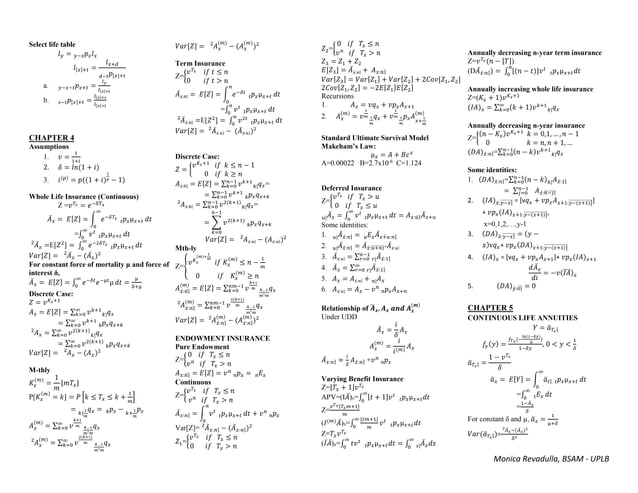 Select life table
l_y = y−x p_x l_x
l_[x]+t = l_x+d / d−t p_[x]+t
a. y−x−t p_x+t = l_y / l_[x]+t
b. s−t p_[x]+t = l_[x]+s / l_[x]+t
CHAPTER 4
Assumptions
1. v = 1/(1+i)
2. δ = ln(1 + i)
3. i^(p) = p((1 + i)^(1/p) − 1)
Whole Life Insurance (Continuous)
Z =v^Tx = e^−δTx
Ā_x = E[Z] = ∫_0^∞ e^−δt t p_x μ_x+t dt
=∫_0^∞ v^t t p_x μ_x+t dt
²Ā_x =E[Z²] = ∫_0^∞ e^−2δTx t p_x μ_x+t dt
Var[Z] = ²Ā_x − (Ā_x)²
For constant force of mortality μ and force of
interest δ,
Ā_x = E[Z] = ∫_0^∞ e^−δt e^−μt μ dt = μ/(μ+δ)
Discrete Case:
Z = v^(Kx+1)
A_x = E[Z] = ∑_(k=0)^∞ v^(k+1) k| q_x
= ∑_(k=0)^∞ v^(k+1) k p_x q_x+k
²A_x = ∑_(k=0)^∞ v^2(k+1) k| q_x
= ∑_(k=0)^∞ v^2(k+1) k p_x q_x+k
Var[Z] = ²A_x − (A_x)²
M-thly
K_x^(m) = 1/m ⌊mT_x⌋
P[K_x^(m) = k] = P[k ≤ T_x ≤ k + 1/m]
= k|1/m q_x = k p_x − k+1/m p_x
A_x^(m) = ∑_(k=0)^∞ v^((k+1)/m) k/m|1/m q_x
²A_x^(m) = ∑_(k=0)^∞ v^(2(k+1)/m) k/m|1/m q_x
Var[Z] = ²A_x^(m) − (A_x^(m))²
Term Insurance
Z={v^Tx if t ≤ n
0 if t > n
Ā_x:n| = E[Z] = ∫_0^n e^−δt t p_x μ_x+t dt
=∫_0^n v^t t p_x μ_x+t dt
²Ā_x:n| =E[Z²] = ∫_0^n v^2t t p_x μ_x+t dt
Var[Z] = ²Ā_x:n| − (Ā_x:n|)²
Discrete Case:
Z = {v^(Kx+1) if k ≤ n − 1
0 if k ≥ n
A_x:n| = E[Z] = ∑_(k=0)^(n−1) v^(k+1) k| q_x=
= ∑_(k=0)^(n−1) v^(k+1) k p_x q_x+k
²A_x:n| = ∑_(k=0)^(n−1) v^2(k+1) k| q_x=
= ∑_(k=0)^(n−1) v^2(k+1) k p_x q_x+k
Var[Z] = ²A_x:n| − (A_x:n|)²
Mth-ly
Z={v^(Kx^(m)+1/m) if K_x^(m) ≤ n − 1/m
0 if K_x^(m) ≥ n
A_x:n|^(m) = E[Z] = ∑_(k=0)^(nm−1) v^((k+1)/m) k/m|1/m q_x
²A_x:n|^(m) = ∑_(k=0)^(nm−1) v^(2(k+1)/m) k/m|1/m q_x
Var[Z] = ²A_x:n|^(m) − (A_x:n|^(m))²
ENDOWMENT INSURANCE
Pure Endowment
Z={0 if T_x ≤ n
v^n if T_x > n
A_x:n| = E[Z] = v^n n p_x = n E_x
Continuous
Z={v^Tx if T_x ≤ n
v^n if T_x > n
Ā_x:n| = ∫_0^n v^t t p_x μ_x+t dt + v^n n p_x
Var[Z]= ²Ā_x:n| − (Ā_x:n|)²
Z_1={v^Tx if T_x ≤ n
0 if T_x > n
Z_2={0 if T_x ≤ n
v^n if T_x > n
Z_3 = Z_1 + Z_2
E[Z_3] = Ā_x:n| + A_x:n|
Var[Z_3] = Var[Z_1] + Var[Z_2] + 2Cov[Z_1, Z_2]
2Cov[Z_1, Z_2] = −2E[Z_1]E[Z_2]
Recursions
1. A_x = vq_x + vp_x A_x+1
2. A_x^(m) = v^(1/m) 1/m q_x + v^(1/m) 1/m p_x A_(x+1/m)^(m)
Standard Ultimate Survival Model
Makeham's Law:
μ_x = A + Bc^x
A=0.00022 B=2.7x10^-6 C=1.124
Deferred Insurance
Z={v^Tx if T_x > u
0 if T_x ≤ u
u|Ā_x = ∫_u^∞ v^t t p_x μ_x+t dt = A_x:u| Ā_x+u
Some identities:
1. u|Ā_x:n| = u E_x Ā_x+u:n|
2. u|Ā_x:n| = Ā_x:u+n| -Ā_x:u|
3. Ā_x:n| = ∑_(r=0)^(n−1) r|Ā_x:1|
4. Ā_x = ∑_(r=0)^∞ r|Ā_x:1|
5. A_x = A_x:n| + n|A_x
6. A_x:n| = A_x − v^n n p_x A_x+n
Relationship of Ā_x, A_x and A_x^(m)
Under UDD
Ā_x = i/δ A_x
A_x^(m) = i/i^(m) A_x
Ā_x:n| = i/δ A_x:n| +v^n n p_x
Varying Benefit Insurance
Z=⌊T_x + 1⌋v^Tx
APV=(IĀ)_x=∫_0^∞ ⌊t + 1⌋v^t t p_x μ_x+t dt
Z= v^Tx⌊T_x m+1⌋/m
(I^(m)Ā)_x=∫_0^∞ ⌊tm+1⌋/m v^t t p_x μ_x+t dt
Z=T_x v^Tx
(ĪĀ)_x=∫_0^∞ tv^t t p_x μ_x+t dt = ∫_0^∞ s|Ā_x ds
Annually decreasing n-year term insurance
Z=v^Tx (n − ⌊T⌋)
(DĀ_x:n|) = ∫_0^n ⌊(n − t)v^t t p_x μ_x+t dt
Annually increasing whole life insurance
Z=(K_x + 1)v^(Kx+1)
(IA)_x = ∑_(k=0)^∞ (k + 1)v^(k+1) k| q_x
Annually decreasing n-year insurance
Z={(n − K_x)v^(Kx+1) k = 0,1, … , n − 1
0 k = n, n + 1, …
(DA)_x:n|=∑_(k=0)^(n−1) (n − k)v^(k+1) k| q_x
Some identities:
1. (DA)_x:n|=∑_(k=0)^(n−1) (n − k) k|A_x:1|
= ∑_(j=0)^(n−1) A_x:n−j|
2. (IA)_x:y−x| = [vq_x + vp_x A_x+1:y−(x+1)|]
+ vp_x (IA)_x+1:y−(x+1)|,
x=0,1,2,…,y-1
3. (DA)_x:y−x| = (y −
x)vq_x + vp_x (DA)_x+1:y−(x+1)|
4. (IA)_x = [vq_x + vp_x A_x+1] + vp_x (IA)_x+1
dĀ_x/di = −v(ĪĀ)_x
5. (DA)_y:0| = 0
CHAPTER 5
CONTINUOUS LIFE ANNUITIES
Y = ā_Tx|
f_Y(y) = f_Tx(−ln(1−δy)/δ) / (1−δy), 0 < y < 1/δ
ā_Tx| = (1 − v^Tx)/δ
ā_x = E[Y] = ∫_0^∞ ā_t| t p_x μ_x+t dt
=∫_0^∞ t E_x dt
=(1−Ā_x)/δ
For constant δ and μ, ā_x = 1/(μ+δ)
Var(ā_Tx|)=(²Ā_x−(Ā_x)²)/δ²
Monica Revadulla, BSAM - UPLB